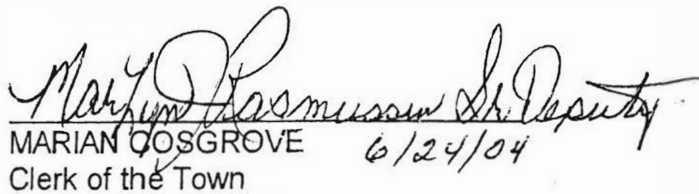 Marilyn D Rasmussen Sr. Deputy
MARIAN COSGROVE 6/24/04
Clerk of the Town